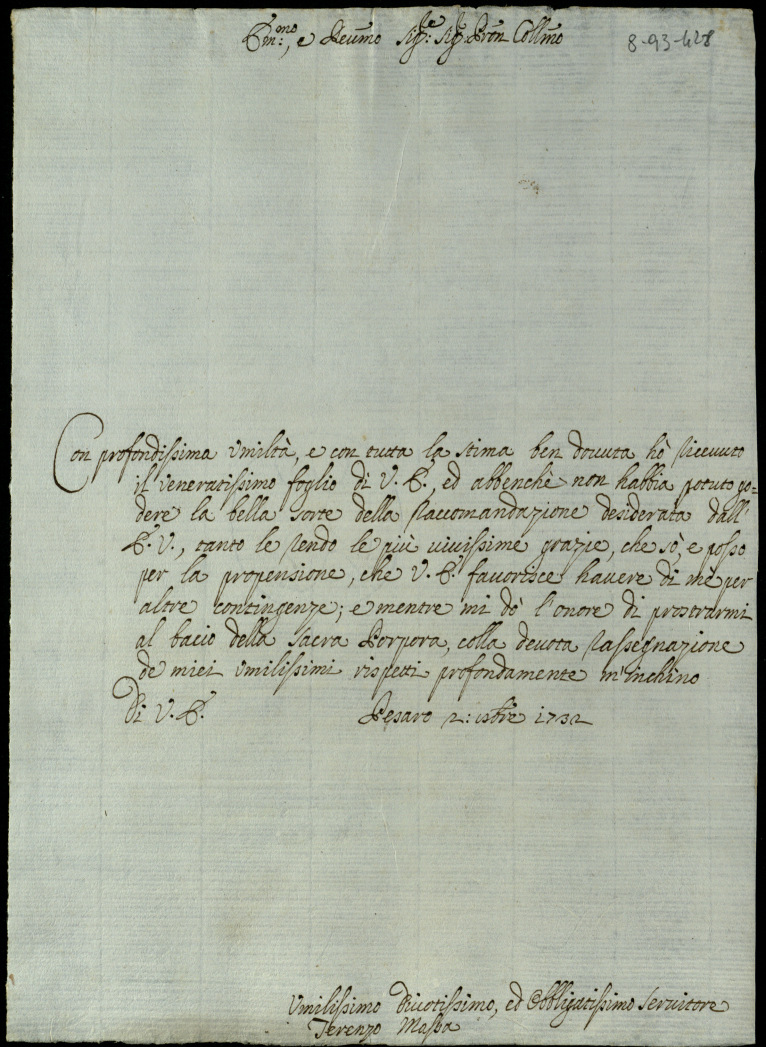 Em:mo, e Reumo Sig:re Sig: Pron Collmo
8-93-428
Con profondissima Vmiltà, e con tutta la stima ben douuta hò riceuuto
il veneratissimo foglio di V. E., ed abbenchè non habbia potuto go=
dere la bella sorte della Raccomandazione desiderata dall'
E. V., tanto le rendo le più viuissime grazie, che sò, e posso
per la propensione, che V. E. fauorisce hauere di mè per
altre contingenze; e mentre mi dò l'onore di prostrarmi
al bacio della Sacra Porpora, colla deuota rassegnazione
de miei Vmilissimi rispetti profondamente m'inchino
Di V. E. Pesaro 2: 1732
Vmilissimo Diuotissimo, ed Obbligatissimo Seruitore
Terenzo Massa